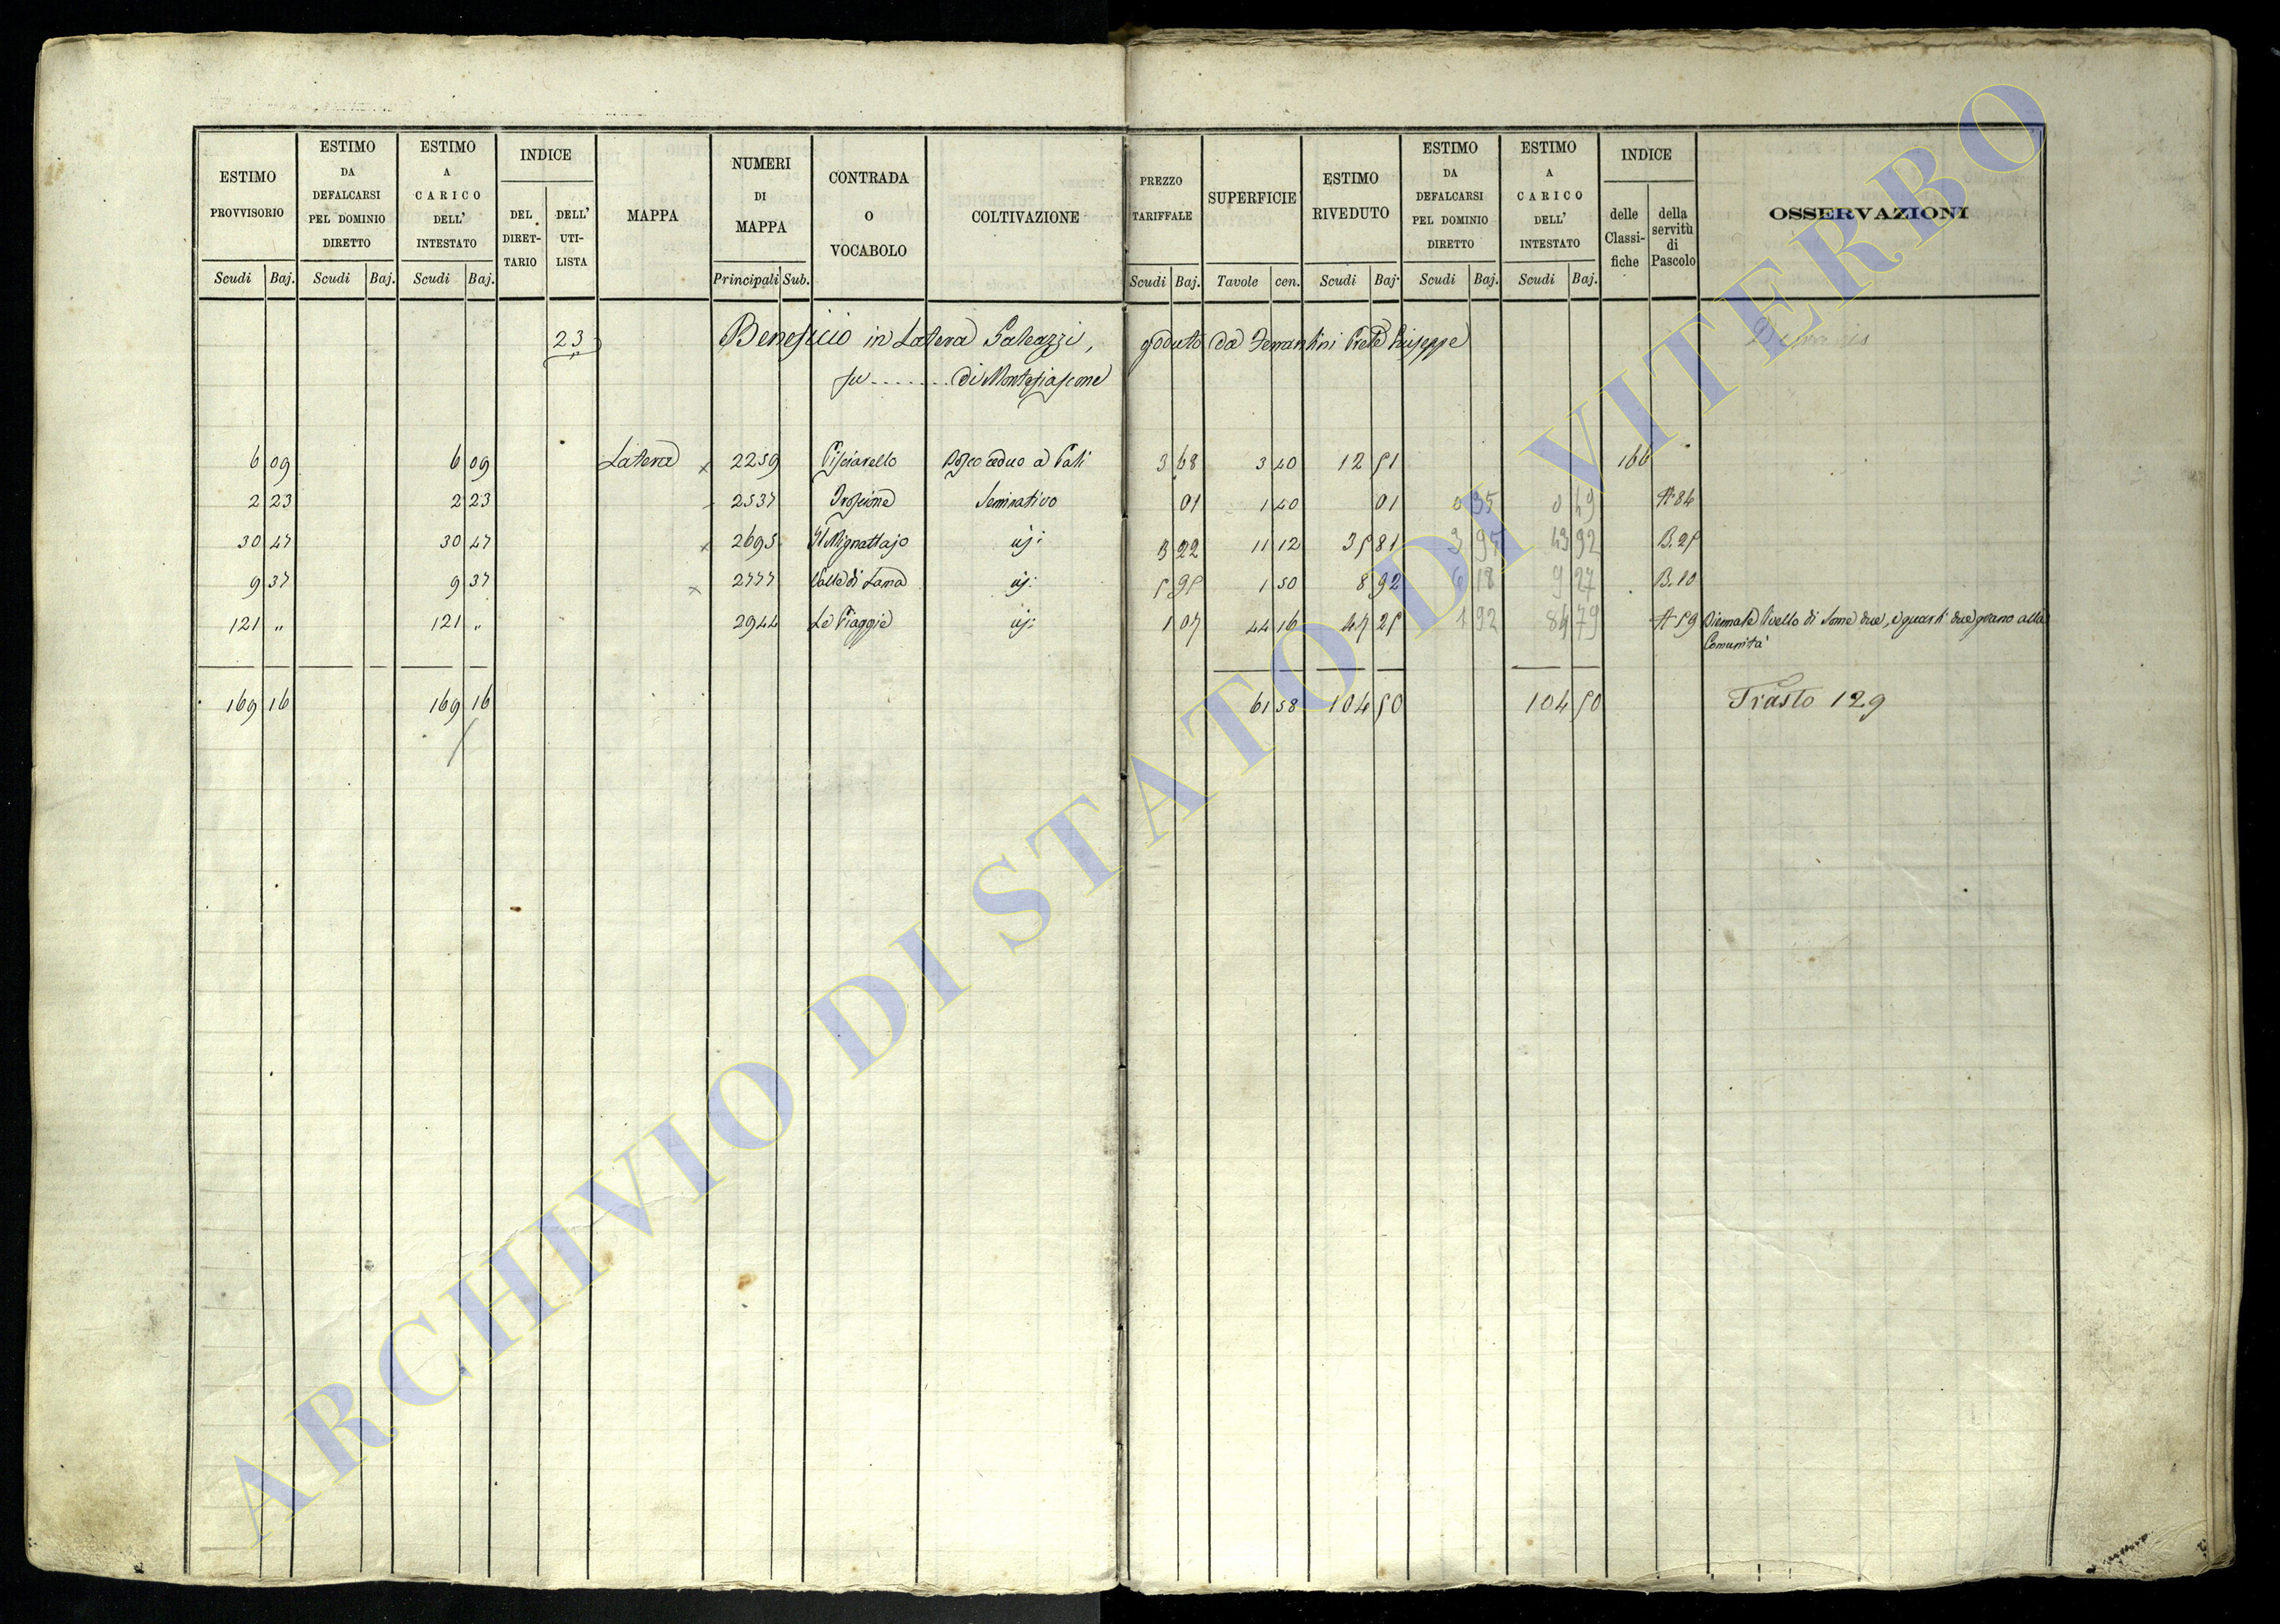 ESTIMO PROVVISORIO Scudi Baj. | ESTIMO DA DEFALCARSI PEL DOMINIO DIRETTO Scudi Baj. | ESTIMO A CARICO DELL' INTESTATO Scudi Baj. | INDICE DEL DIRET- TARIO | DELL' UTI- LISTA | MAPPA | NUMERI DI MAPPA Principali Sub. | CONTRADA O VOCABOLO | COLTIVAZIONE | PREZZO TARIFFALE Scudi Baj. | SUPERFICIE Tavole cen. | ESTIMO RIVEDUTO Scudi Baj. | ESTIMO DA DEFALCARSI PEL DOMINIO DIRETTO Scudi Baj. | ESTIMO A CARICO DELL' INTESTATO Scudi Baj. | INDICE delle Classi- fiche | della servitù di Pascolo | OSSERVAZIONI
23 Beneficio in Latera Galeazzi, goduto da Ferrantini Prete Giuseppe
fu........ di Montefiascone
6 09 6 09 Latera x 2259 Pisciarello Bosco ceduo a Pali 3 68 3 40 12 51 166
2 23 2 23 2537 Seminativo 01 1 40 01 0 35 0 49 A 84
30 47 30 47 x 2695 Il Mignattajo id: 3 22 11 12 35 81 3 95 43 92 B. 25
9 37 9 37 x 2777 Valle di Lama id: 5 95 1 50 8 92 6 18 9 27 B. 10
121 " 121 " 2944 Le Piaggie id: 1 07 44 16 47 25 1 92 84 79 A 59 Biennale Livello di Some due, e quarti due grano alla
Comunità
169 16 169 16 61 58 104 50 104 50 Trasto 129
ARCHIVIO DI STATO DI VITERBO